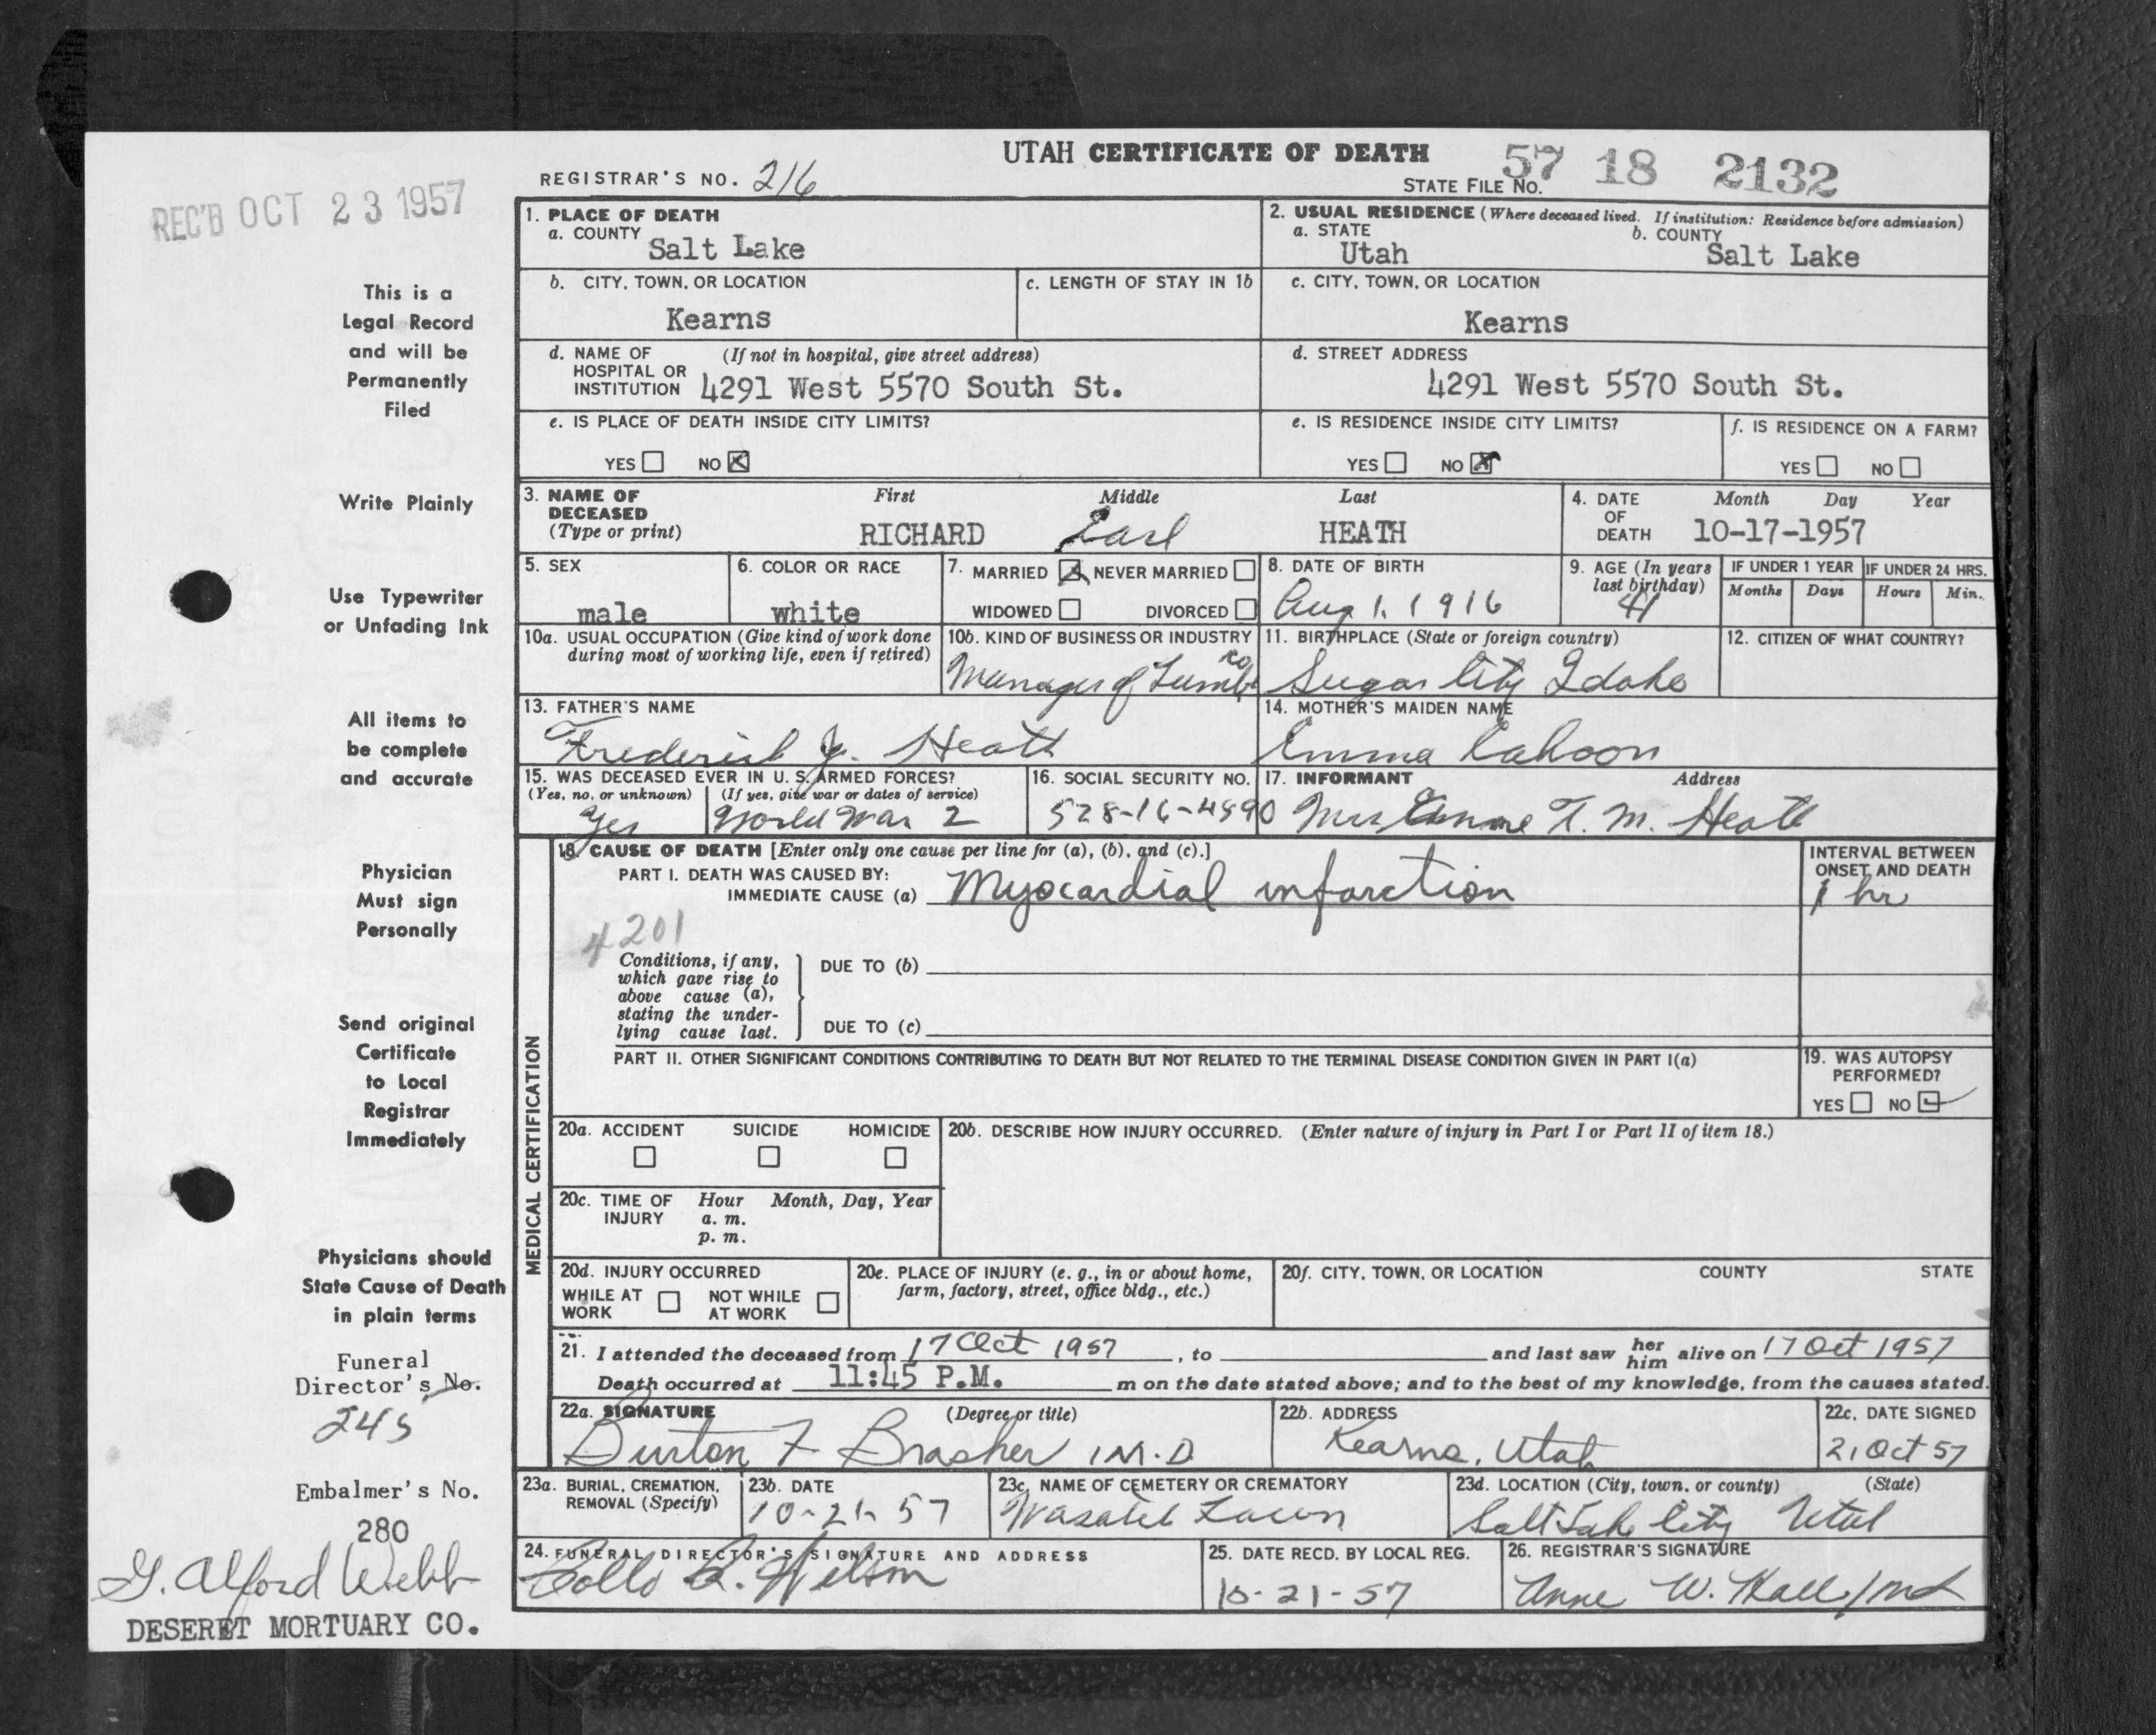 UTAH CERTIFICATE OF DEATH
REGISTRAR'S NO. 216
STATE FILE NO. 57 18 2132
REC'D OCT 23 1957
This is a
Legal Record
and will be
Permanently
Filed
Write Plainly
Use Typewriter
or Unfading Ink
All items to
be complete
and accurate
Physician
Must sign
Personally
Send original
Certificate
to Local
Registrar
Immediately
Physicians should
State Cause of Death
in plain terms
Funeral
Director's No.
245
Embalmer's No.
280
G. Alford Webb
DESERET MORTUARY CO.
1. PLACE OF DEATH
a. COUNTY Salt Lake
2. USUAL RESIDENCE (Where deceased lived. If institution: Residence before admission)
a. STATE Utah b. COUNTY Salt Lake
b. CITY, TOWN, OR LOCATION
Kearns
c. LENGTH OF STAY IN 1b
c. CITY, TOWN, OR LOCATION
Kearns
d. NAME OF HOSPITAL OR INSTITUTION (If not in hospital, give street address)
4291 West 5570 South St.
d. STREET ADDRESS
4291 West 5570 South St.
e. IS PLACE OF DEATH INSIDE CITY LIMITS?
YES NO X
e. IS RESIDENCE INSIDE CITY LIMITS?
YES NO X
f. IS RESIDENCE ON A FARM?
YES NO
3. NAME OF DECEASED (Type or print)
First Middle Last
RICHARD Earl HEATH
4. DATE OF DEATH Month Day Year
10-17-1957
5. SEX
male
6. COLOR OR RACE
white
7. MARRIED X NEVER MARRIED
WIDOWED DIVORCED
8. DATE OF BIRTH
Aug 1, 1916
9. AGE (In years last birthday)
41
IF UNDER 1 YEAR IF UNDER 24 HRS.
Months Days Hours Min.
10a. USUAL OCCUPATION (Give kind of work done
during most of working life, even if retired)
10b. KIND OF BUSINESS OR INDUSTRY
Manager of Lumb co
11. BIRTHPLACE (State or foreign country)
Sugar City Idaho
12. CITIZEN OF WHAT COUNTRY?
13. FATHER'S NAME
Frederick J. Heath
14. MOTHER'S MAIDEN NAME
Emma Cahoon
15. WAS DECEASED EVER IN U. S. ARMED FORCES?
(Yes, no, or unknown) (If yes, give war or dates of service)
Yes World War 2
16. SOCIAL SECURITY NO.
528-16-4890
17. INFORMANT Address
Mrs T. M. Heath
18. CAUSE OF DEATH [Enter only one cause per line for (a), (b), and (c).]
PART I. DEATH WAS CAUSED BY:
IMMEDIATE CAUSE (a) Myocardial infarction
INTERVAL BETWEEN
ONSET AND DEATH
1 hr
4201
Conditions, if any,
which gave rise to
above cause (a),
stating the under-
lying cause last.
DUE TO (b)
DUE TO (c)
PART II. OTHER SIGNIFICANT CONDITIONS CONTRIBUTING TO DEATH BUT NOT RELATED TO THE TERMINAL DISEASE CONDITION GIVEN IN PART I(a)
19. WAS AUTOPSY
PERFORMED?
YES NO
MEDICAL CERTIFICATION
20a. ACCIDENT SUICIDE HOMICIDE
20b. DESCRIBE HOW INJURY OCCURRED. (Enter nature of injury in Part I or Part II of item 18.)
20c. TIME OF INJURY Hour Month, Day, Year
a. m.
p. m.
20d. INJURY OCCURRED
WHILE AT WORK NOT WHILE AT WORK
20e. PLACE OF INJURY (e. g., in or about home,
farm, factory, street, office bldg., etc.)
20f. CITY, TOWN, OR LOCATION COUNTY STATE
21. I attended the deceased from 17 Oct 1957, to and last saw her him alive on 17 Oct 1957
Death occurred at 11:45 P.M. m on the date stated above; and to the best of my knowledge, from the causes stated.
22a. SIGNATURE (Degree or title)
Burton F Brasher M.D
22b. ADDRESS
Kearns, Utah
22c. DATE SIGNED
21 Oct 57
23a. BURIAL, CREMATION,
REMOVAL (Specify)
23b. DATE
10-21-57
23c. NAME OF CEMETERY OR CREMATORY
Wasatch Lawn
23d. LOCATION (City, town, or county) (State)
Salt Lake City Utah
24. FUNERAL DIRECTOR'S SIGNATURE AND ADDRESS
25. DATE RECD. BY LOCAL REG.
10-21-57
26. REGISTRAR'S SIGNATURE
Anne W.